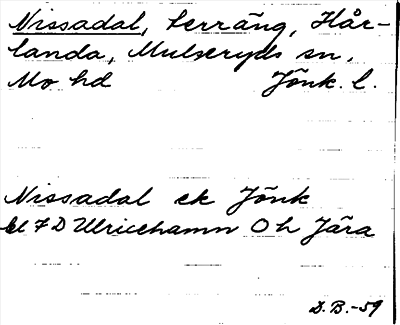 Nissadal, terräng, Hår-
landa, Mulseryds sn.
Mo hd Jönk. l.
Nissadal ek Jönk
bl 7 D Ulricehamn O h Jära
D. B. -59